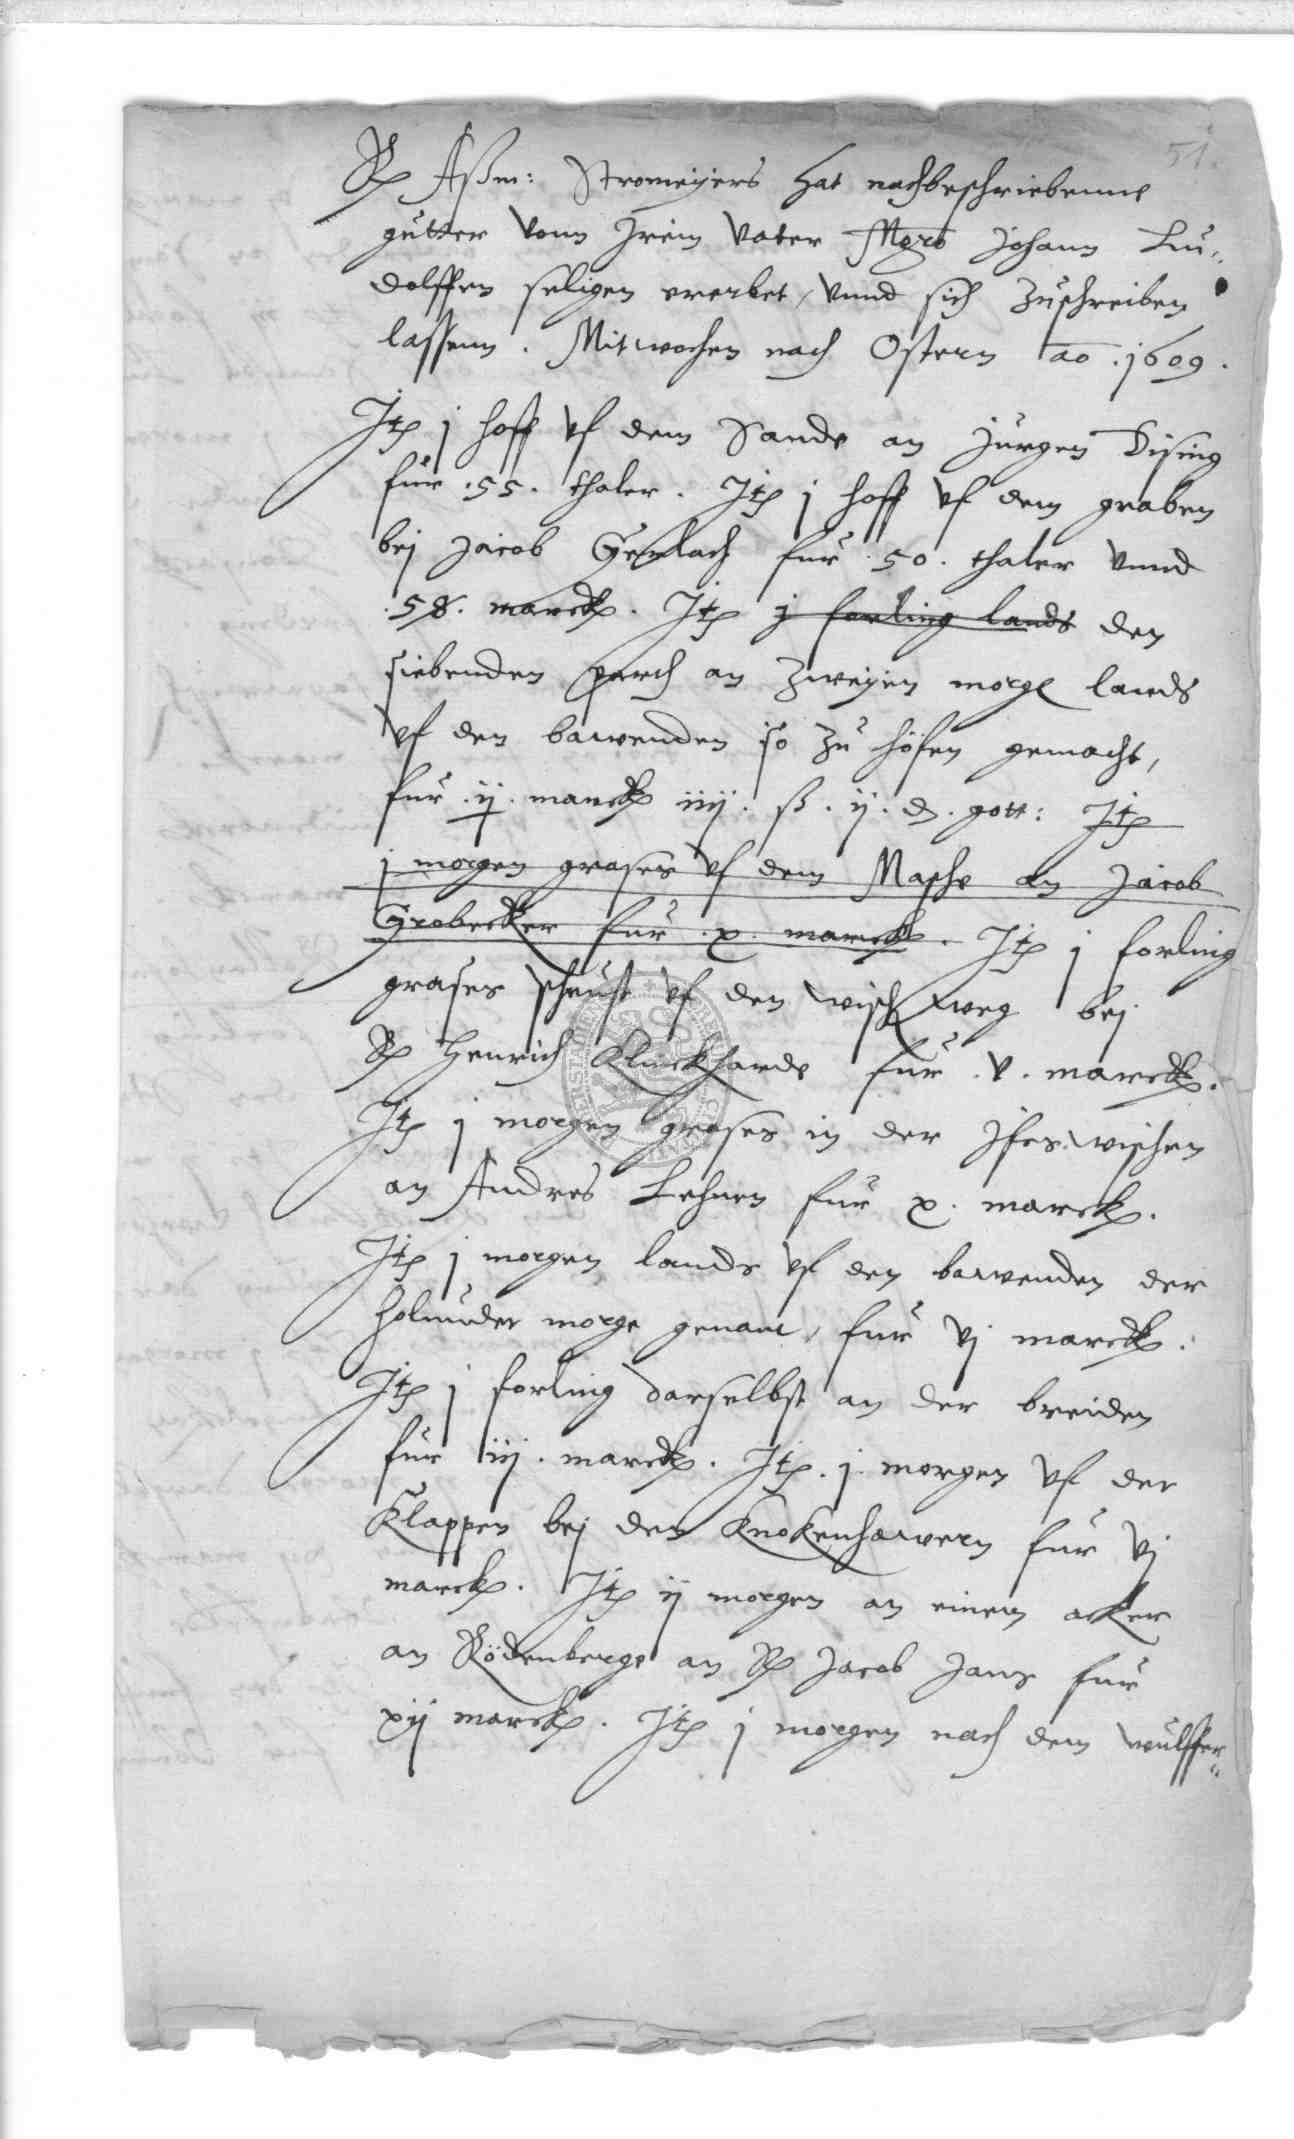 51.
R Aßm: Stromeÿers hat nachbeschriebenne
gütter vonn Jrem Vater Mgro Johann Lu„
dolffen seligen ererbet, vnnd sich zuschreiben
lassenn. Mitwochen nach Ostern ao .1609.
Jtem j hoff vf dem Sande an Jurgen Dising
für .55. thaler. Jtem j hoff vf dem graben
bej Jacob Gerlach für .50. thaler vnnd
.58. marck. Jtem j forling lands den
siebenden parch an zweyen morge lands
vf den bawenden so zu höfen gemacht,
für .ij. marck iiij. ß. ij. d. gott: Jtem
j morgen grases vf dem Masche an Jacob
Grobecker für .x. marck. Jtem j forling
grases scheust vf den wisch weg bej
R Henrich Kluckhards für .v. marck.
Jtem j morgen grases in der wischen
an Andres Lehnen für x. marck.
Jtem j morgen lands vf den bawenden der
holunder morge genant, für vj marck.
Jtem j forling darselbst an der breiden
für iij. marck. Jtem .j. morgen vf der
Klappen bej den Knokenhawern für vj
marck. Jtem ij morgen an einem acker
an Rödenberge an R Jacob Jans für
xij marck. Jtem j morgen nach dem wulffer„